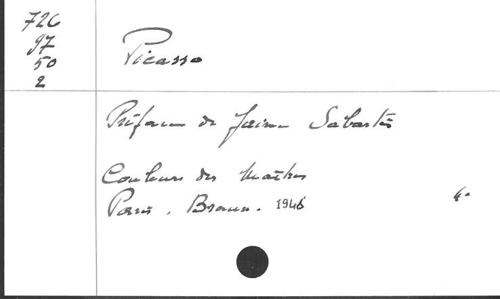 726
97
50
2
Picasso
Préface de Jaime Sabartès
Couleurs des Maîtres
Paris. Braun. 1946
4°